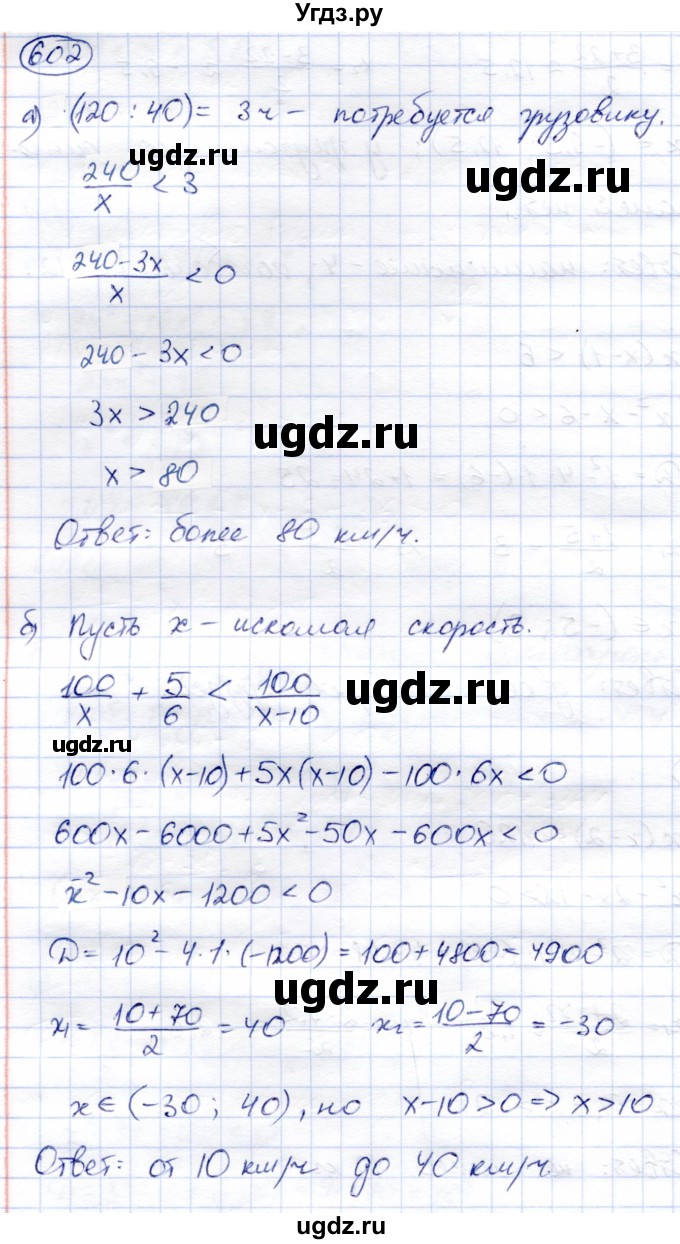 Угдз.ру
602
а) (120 : 40) = 3 ч – потребуется грузовику.
ugdz.ru ugdz.ru
240/x < 3
(240-3x)/x < 0
240 - 3x < 0
3x > 240
ugdz.ru
x > 80
Ответ: более 80 км/ч.
б) Пусть x – искомая скорость.
100/x + 5/6 < 100/(x-10)
ugdz.ru
ugdz.ru
100·6·(x-10)+5x(x-10)-100·6x<0
600x - 6000+5x²-50x-600x<0
x²-10x-1200<0
Д = 10²-4·1·(-1200)=100+4800=4900
ugdz.ru
x₁ = (10+70)/2 = 40 x₂ = (10-70)/2 = -30
x∈(-30; 40), но x-10>0 => x>10
Ответ: от 10 км/ч до 40 км/ч.
ugdz.ru